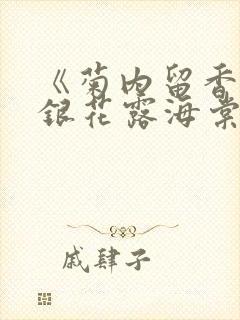 《菊内留香
银花露海棠
戚肆子